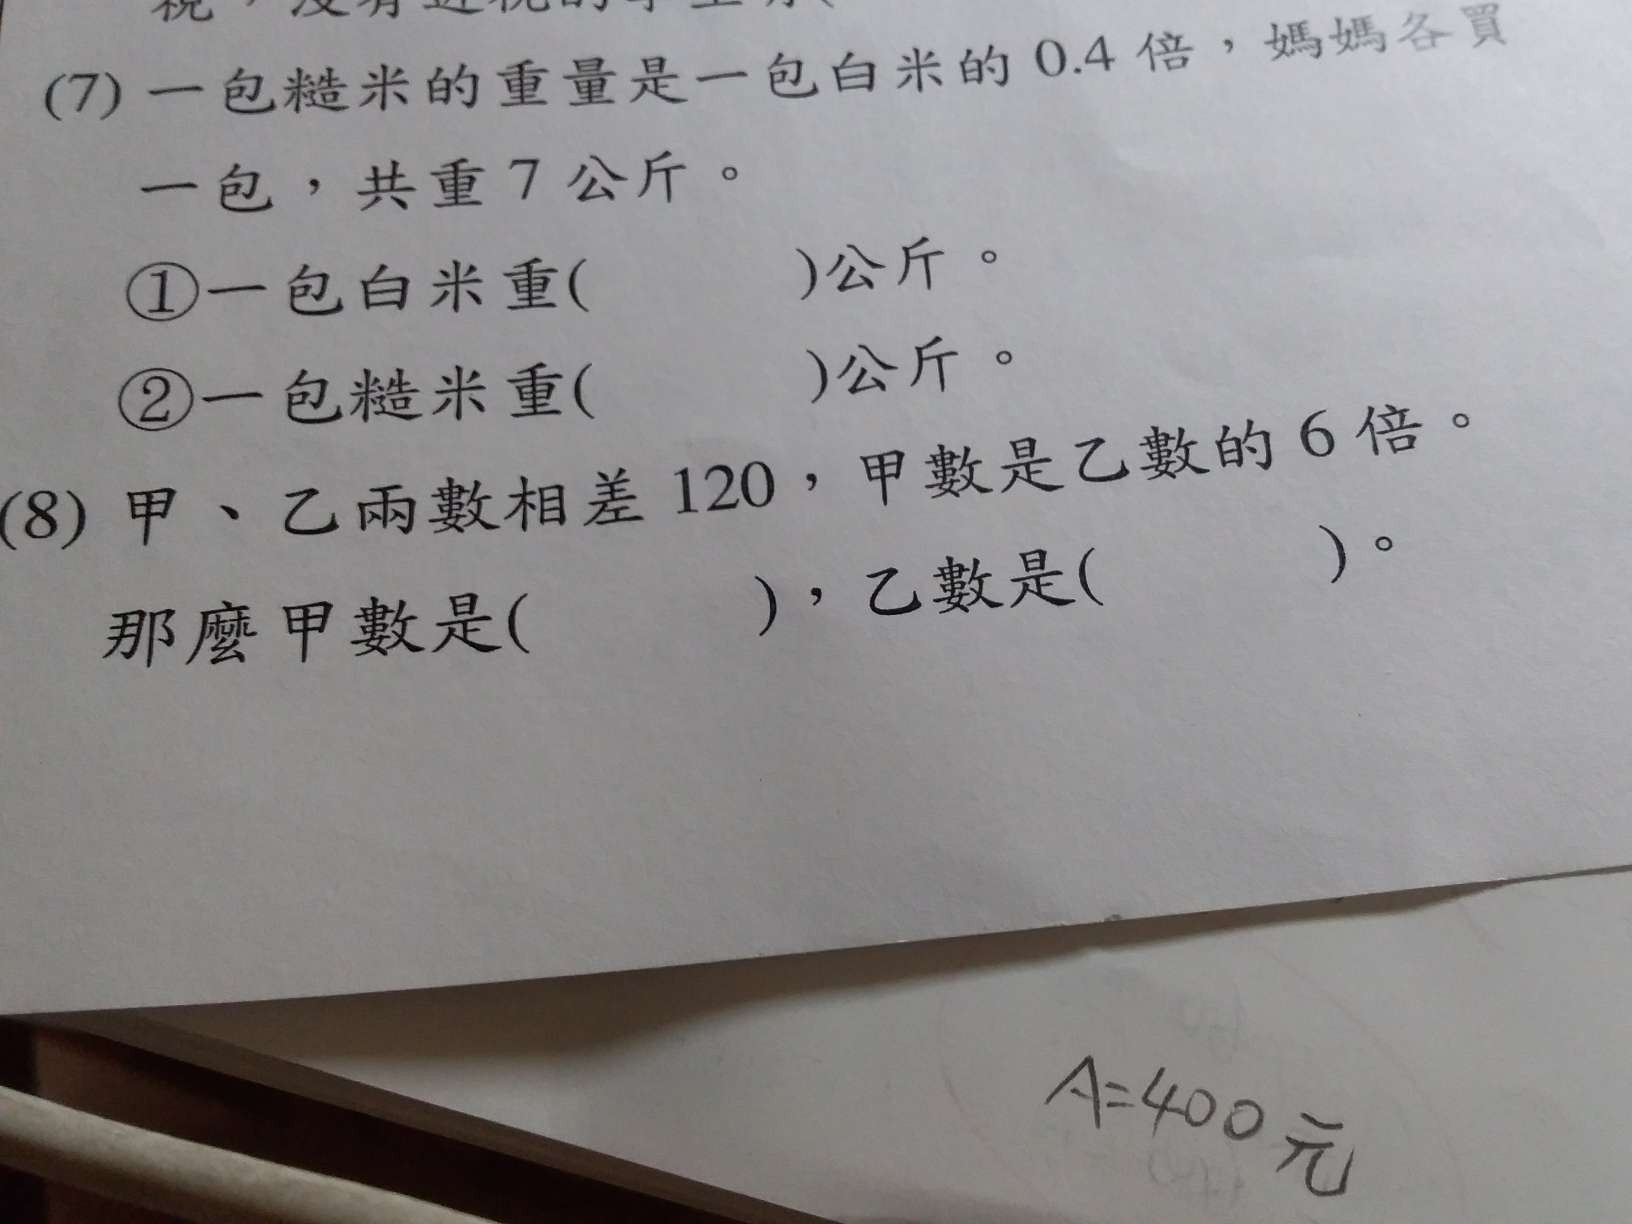 (7) 一包糙米的重量是一包白米的 0.4 倍，媽媽各買
一包，共重 7 公斤。
①一包白米重(　　)公斤。
②一包糙米重(　　)公斤。
(8) 甲、乙兩數相差 120，甲數是乙數的 6 倍。
那麼甲數是(　　)，乙數是(　　)。
A=400元